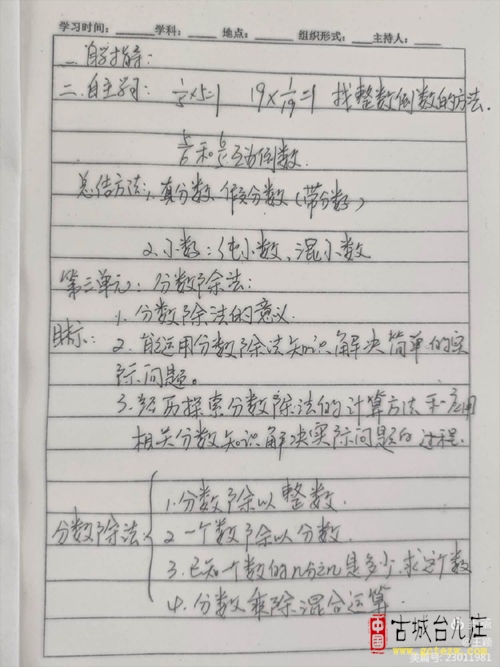 学习时间： 学科： 地点： 组织形式： 主持人：
一.自学指导：
二.自主学习： 1/5×5=1 19×1/19=1 找整数倒数的方法.
5/6和6/5互为倒数.
总结方法：1.真分数 假分数（带分数）
2.小数：纯小数、混小数
第三单元：分数除法：
1.分数除法的意义.
目标：2.能运用分数除法知识解决简单的实
际问题。
3.经历探索分数除法的计算方法和应用
相关分数知识解决实际问题的过程.
1.分数除以整数.
分数除法 2.一个数除以分数.
3.已知一个数的n分之n是多少.求这个数
4.分数乘除混合运算
中国 古城台儿庄
www.gotezw.com
美篇号：23011981